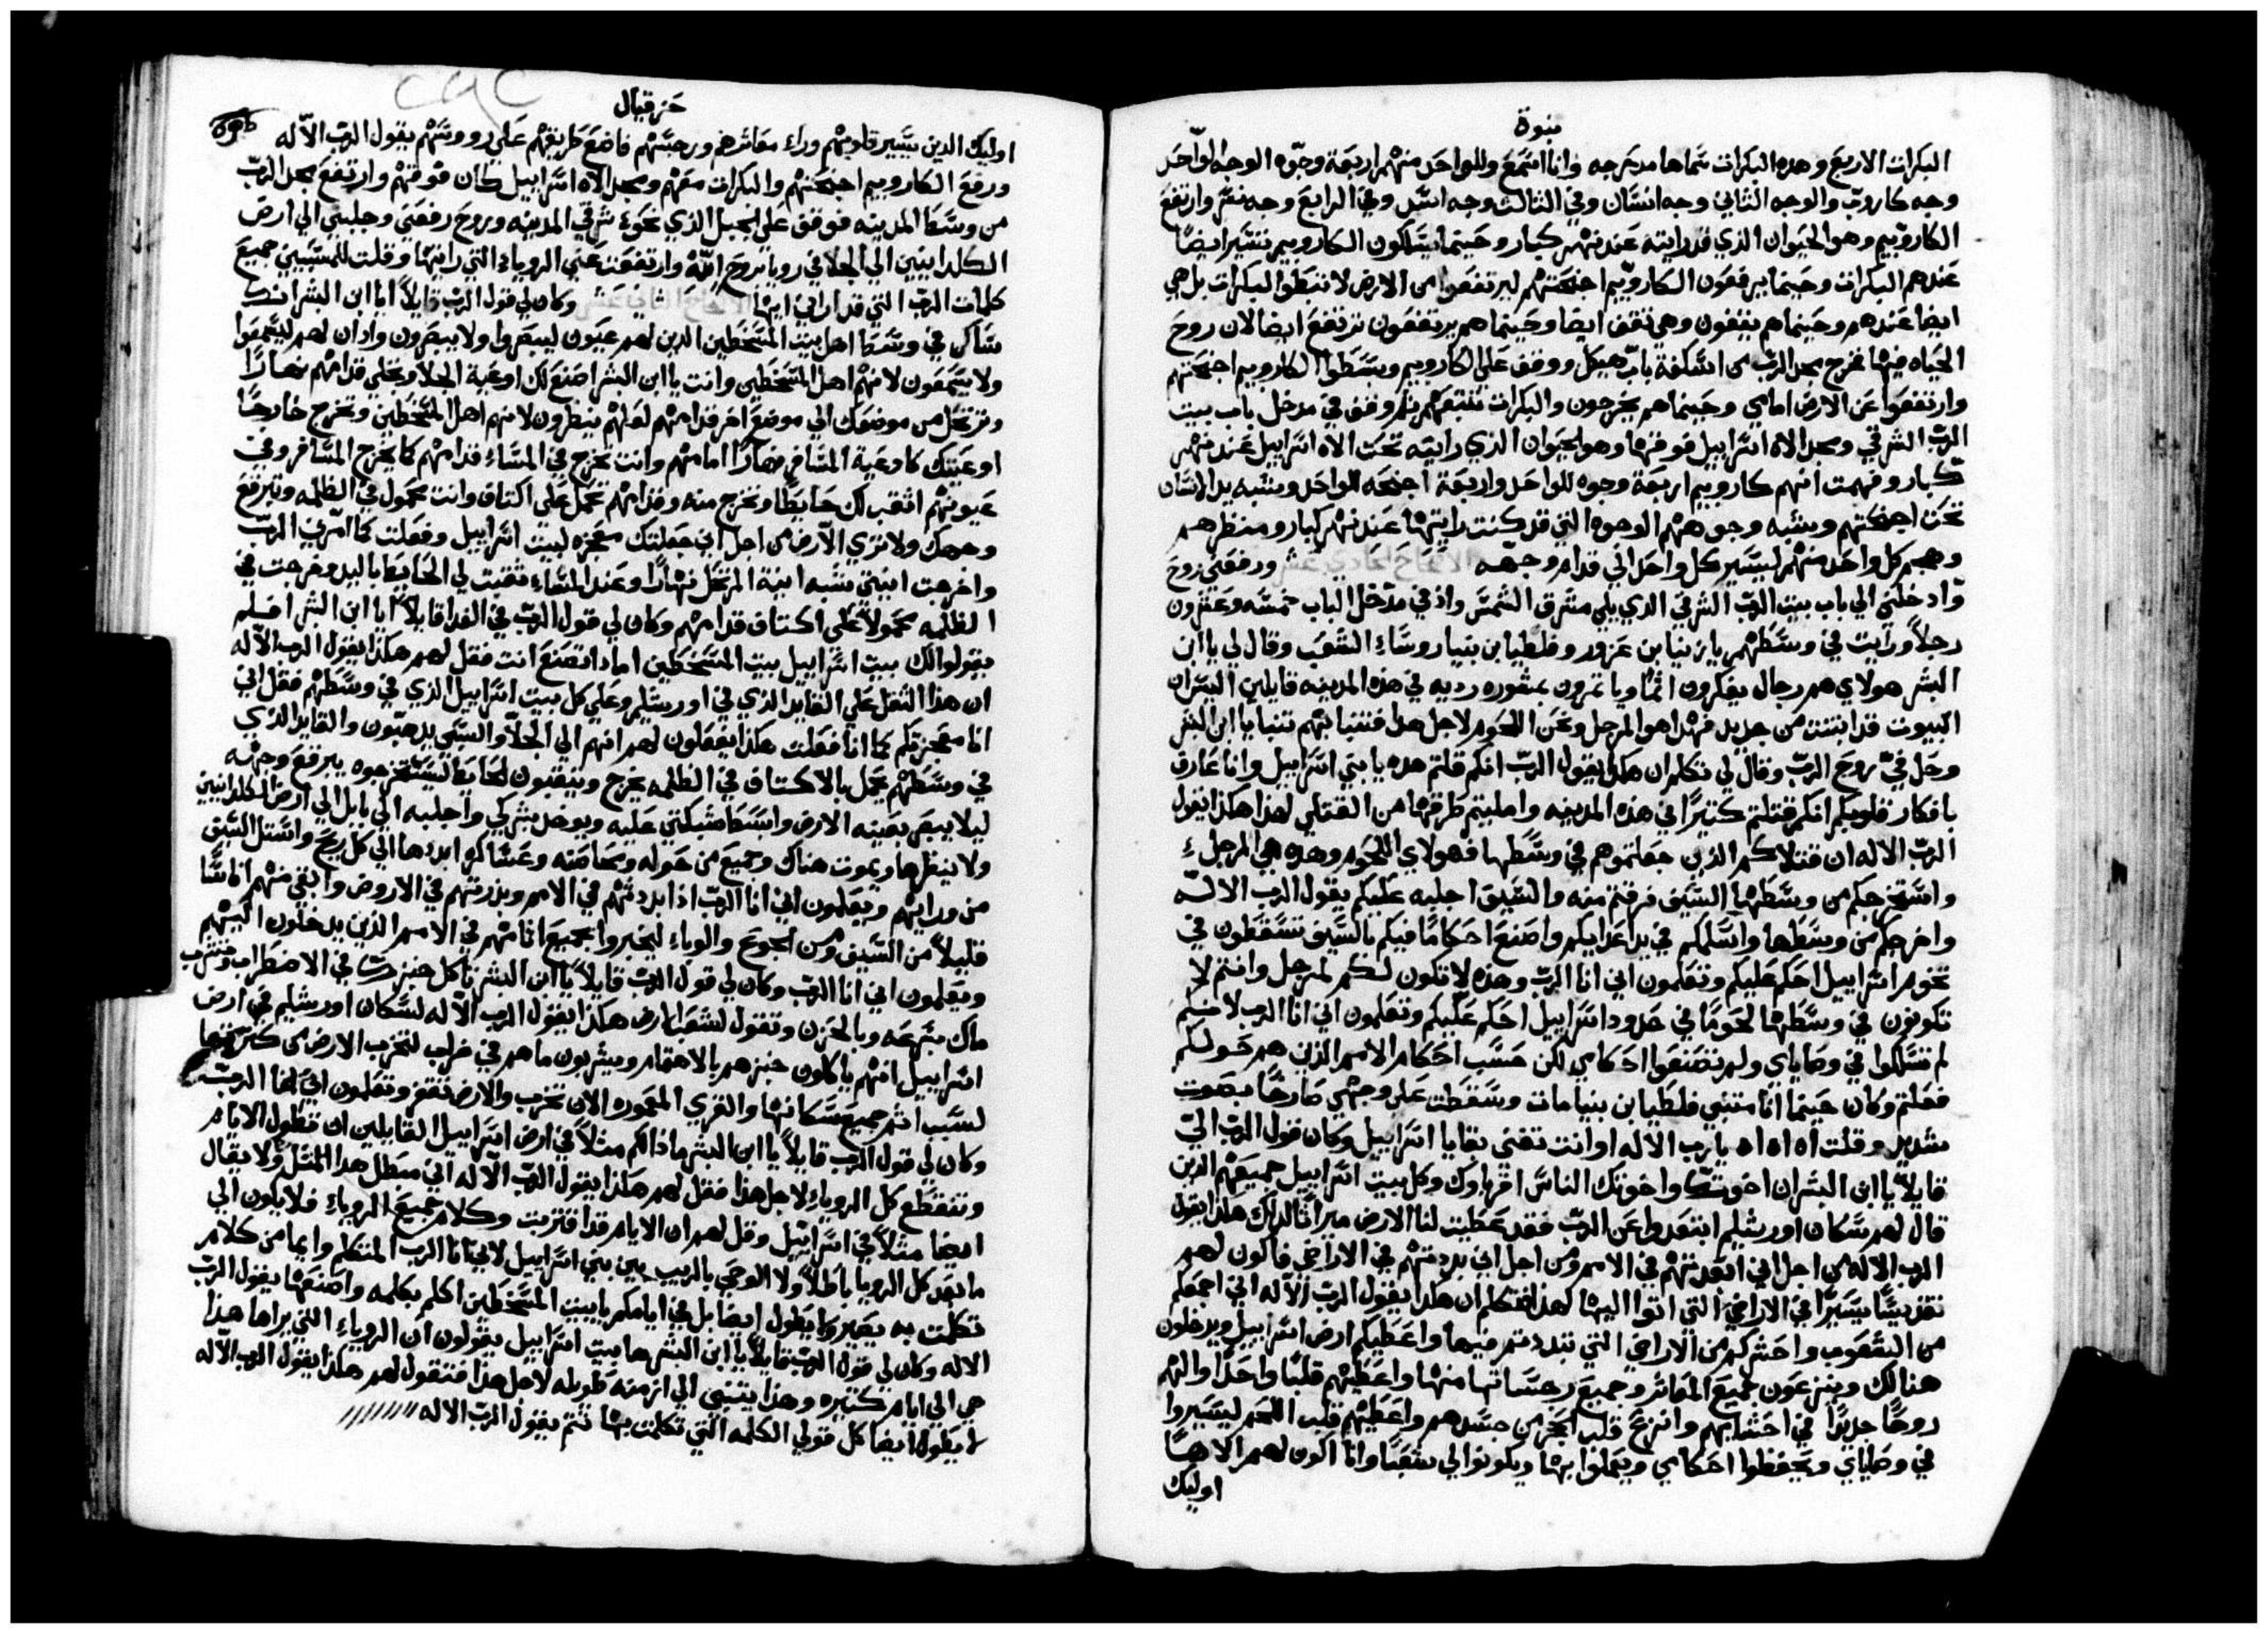 نبوة
البكرات الاربع وهده البكرات سماها مدحرجه وانا اسمع وللواحد منهم اربعة وجوه الوجه الواحد
وجه كاروب والوجه الثاني وجه انسان وفي الثالث وجه اسد وفي الرابع وجه نسر وارتفع
الكاروبيم وهو الحيوان الذي قد رايته عند نهر كبار وحينما يسلكون الكاروبيم تسير ايضاً
عندهم البكرات وحينما يرفعون الكاروبيم اجنحتهم ليرتفعوا من الارض لا تبطوا البكرات بل هي
ايضا عندهم وحينما هم يقفون وهي تقف ايضا وحينما هم يرتفعون ترتفع ايضا لان روح
الحياه فيها فخرج مجد الرب من اسكفة باب هيكل ووقف على الكاروبيم وبسطوا الكاروبيم اجنحتهم
وارتفعوا عن الارض امامي وحينما هم يخرجون والبكرات تتبعهم ثم وقف في مدخل باب بيت
الرب الشرقي ومجد الاه اسراييل فوقها وهو الحيوان الذي رايته تحت الاه اسراييل عند نهر
كبار وفهمت انهم كاروبيم اربعة وجوه للواحد واربعة اجنحه للواحد وشبه يد انسان
تحت اجنحتهم وشبه وجوههم الوجوه التي قد كنت رايتها عند نهر كبار ومنظرهم
وهجم كل واحد منهم ليسير كل واحد الي قدام وجهه الاصحاح الحادي عشر ورفعني روح
وادخلني الي باب بيت الرب الشرقي الدي يلي مشرق الشمس واذ في مدخل الباب خمسه وعشرون
رجلاً ورايت في وسطهم يازنيا بن عزور وفلطيا بن بنيا روساء الشعب وقال لي يا ابن
البشر هولاي هم رجال يفكرون اثماً ويامرون بمشوره رديه في هذه المدينه قايلين اليس ان
البيوت قد ابتنت من جديد فهذا هو المرجل ونحن اللحوم لاجل هدا فتنبا بهم تنبا يا ابن البشر
وحل فيّ روح الرب وقال لي تكلم ان هكذا يقول الرب انكم قلتم هده يا بني اسراييل وانا عارف
بافكار قلوبكم انكم قتلتم كثيراً في هذه المدينه وامليتم طرقها من القتلي لهذا هكذا يقول
الرب الاله ان قتلاكم الذين جعلتموهم في وسطها فهولاي اللحوم وهده هي المرجل
واستخرجكم من وسطها السيف فزعتم منه والسيف اجلبه عليكم يقول الرب الاله
واخرجكم من وسطها واسلمكم في يد اعدايكم واصنع احكاماً فيكم بالسيف تسقطون في
تخوم اسراييل احكم عليكم وتعلمون اني انا الرب وهذه لا تكون لكم لمرجل وانتم لا
تكونون في وسطها لحوماً في حدود اسراييل احكم عليكم وتعلمون اني انا الرب لانكم
لم تسلكوا في وصاياي ولم تصنعوا احكامي لكن حسب احكام الامم الذين هم حولكم
فعلتم وكان حينما انا متنبي فلطيا بن بنيا مات وسقطت على وجهي صارخاً بصوت
شديد وقلت اه اه اه يا رب الاله او انت تفني بقايا اسراييل وكان قول الرب اليّ
قايلاً يا ابن البشر ان اخوتك واخوتك الناس اقرباوك وكل بيت اسراييل جميعهم الذين
قال لهم سكان اورشليم ابتعدوا عن الرب فقد عطيت لنا الارض ميراثاً لذلك هكذا يقول
الرب الاله من اجل اني ابعدتهم في الامم ومن اجل اني بددتهم في الاراضي فاكون لهم
تقديساً يسيراً في الاراضي التي اتوا اليها لهدا فتكلم ان هكذا يقول الرب الاله اني اجمعكم
من الشعوب واحشركم من الاراضي التي تبددتم فيها واعطيكم ارض اسراييل ويدخلون
هنالك وينزعون جميع المعاثر وجميع رجساتها منها واعطيهم قلباً واحداً والهم
روحاً جديداً في احشايهم وانزع قلب الحجر من جسدهم واعطيهم قلب اللحم ليسيروا
في وصاياي ويحفظوا احكامي ويعملوا بها ويكونوا لي شعباً وانا اكون لهم الاهاً
اوليك
حزقيال
اوليك الدين تسير قلوبهم وراء معاثرهم ورجستهم فاضع طريقهم على رووسهم يقول الرب الاله
ورفع الكاروبيم اجنحتهم والبكرات معهم ومجد الاه اسراييل كان فوقهم وارتفع مجد الرب
من وسط المدينه فوقف على الجبل الذي نحو شرقي المدينه وروح رفعني وجلبني الي ارض
الكلدانيين الي الجلا في رويا بروح الله وارتفعت عني الروياء التي رايتها وقلت للمسبيين جميع
كلمات الرب التي قد اراني اياها الاصحاح الثاني عشر وكان لي قول الرب قايلاً يا ابن البشر انك
ساكن في وسط اهل بيت المسخطين الدين لهم عيون ليبصروا ولا يبصرون وادان لهم ليسمعوا
ولا يسمعون لانهم اهل المسخطين وانت يا ابن البشر اصنع لك اوعية الجلا وتجلي قدامهم نهاراً
وترتحل من موضعك الي موضع اخر قدامهم لعلهم ينظرون لانهم اهل المسخطين وتخرج خارجاً
اوعيتك كاوعية المسافر نهاراً امامهم وانت تخرج في المساء قدامهم كما يخرج المسافر وفي
عيونهم اثقب لك حايطاً وتخرج منه وقدامهم تحمل على اكتاف وانت محمول في الظلمه وتبرقع
وجهك ولا تري الارض من اجل اني جعلتك معجزه لبيت اسراييل وفعلت كما امرني الرب
واخرجت انيتي شبه انية المرتحل نهاراً وعند المساء ثقبت لي الحايط باليد وخرجت في
الظلمه محمولاً على اكتاف قدامهم وكان لي قول الرب في الغد قايلاً يا ابن البشر افلم
يقولوا لك بيت اسراييل بيت المسخطين اما دا تصنع انت فقل لهم هكذا يقول الرب الاله
ان هذا الثقل على القايد الذي في اورشليم وعلي كل بيت اسراييل الذي في وسطهم فقل اني
انا معجزتكم كما انا فعلت هكذا يفعلون لهم انهم الي الجلا والسبي يدهبون والقايد الذي
في وسطهم يحمل بالاكتاف في الظلمه يخرج وينقبون الحايط ليستخرجوه يبرقع وجهه
ليلا يبصر بعينه الارض وابسط شبكتي عليه ويوخذ بشركي واجلبه الي بابل الي ارض الكلدانيين
ولا ينظرها ويموت هناك وجميع من حوله ومعاضنه وعساكره ابددها الي كل ريح واستل السيف
من ورايهم ويعلمون اني انا الرب اذا بددتهم في الامم وبزرتهم في الاروض وابقي منهم اناساً
قليلاً من السيف ومن الجوع والوباء ليخبروا بجميع اثامهم في الامم الذين يدخلون اليهم
ويعلمون اني انا الرب وكان لي قول الرب قايلاً يا ابن البشر تاكل خبزك في الاضطراب وتشرب
ماك بسرعه وبالحزن وتقول لشعب الارض هكذا يقول الرب الاله لسكان اورشليم في ارض
اسراييل انهم ياكلون خبزهم بالاهتمام ويشربون ماهم في خراب لتخرب الارض من كثرتها
لسبب اثم جميع سكانها والقري المعموره الان تخرب والارض تقفر وتعلمون اني انا الرب
وكان لي قول الرب قايلاً يا ابن البشر ما ذا لكم مثلاً في ارض اسراييل القايلين ان تطول الايام
وتنقطع كل الروياء لاجل هذا فقل لهم هكذا يقول الرب الاله اني مبطل هدا المثل ولا يقال
ايضا مثلاً في اسراييل وقل لهم ان الايام قد اقتربت وكلام جميع الروياء فلا يكون الي
ما بعد كل الرويا باطلاً ولا الوحي بالريب بين بني اسراييل لاني انا الرب المتكلم وايما من كلام
تكلمت به يصير ولا يطول ايضا بل في ايامكم يا بيت المسخطين اكلم بكلمه واصنعها يقول الرب
الاله وكان لي قول الرب قايلاً يا ابن البشر ها بيت اسراييل يقولون ان الروياء التي يراها هذا
هي الي ايام كثيره وهذا يتنبي الي ازمنه طويله لاجل هذا فتقول لهم هكذا يقول الرب الاله
لا يطول ايضا كل قولي الكلمه التي تكلمت بها تتم يقول الرب الاله